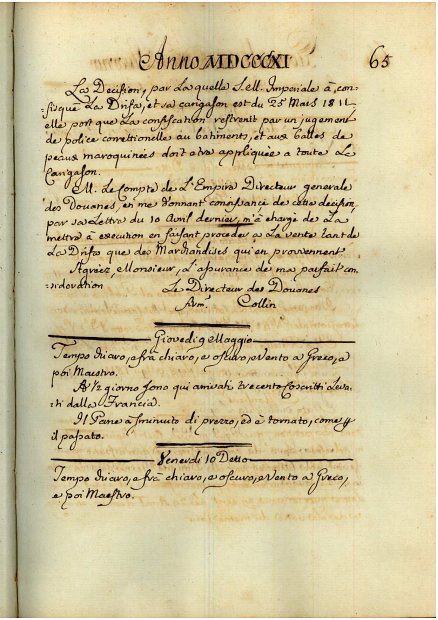 Anno MDCCCXI 65
La Decision, par La quelle S. M. Imperiale à con-
-fisqué La Drisa, et sa carigason est du 25 Mars 1811,
elle port que La confiscation restrenit par un jugement
de police corretionelle au batiments, et aux balles de
peaux maroquinées doit etre appliquée a toute Le
Carigason.
M. Le Compte de L'Empire Directeur generale
des Douanes, en me donnant connaissance de cette decision,
par sa Lettre du 10 Avril dernier, m'à chargé de La
mettre à execution en faisant proceder a La vente tant de
La Drisa que des Marchandises qui en proviennent
Agréez, Monsieur, L'assurance de ma parfait con-
sideration Le Directeur des Douanes
Collin
Giovedi 9 Maggio
Tempo chiaro, e frà chiaro, e oscuro, e Vento a Greco, e
poi Maestro.
A ½ giorno sono qui arrivati trecento Coscritti Leva-
-ti dalla Francia.
Il Pane à sminuito di prezzo, ed è tornato, come p
il passato.
Venerdi 10 Detto
Tempo chiaro, e frà chiaro, e oscuro, e Vento a Greco,
e poi Maestro.